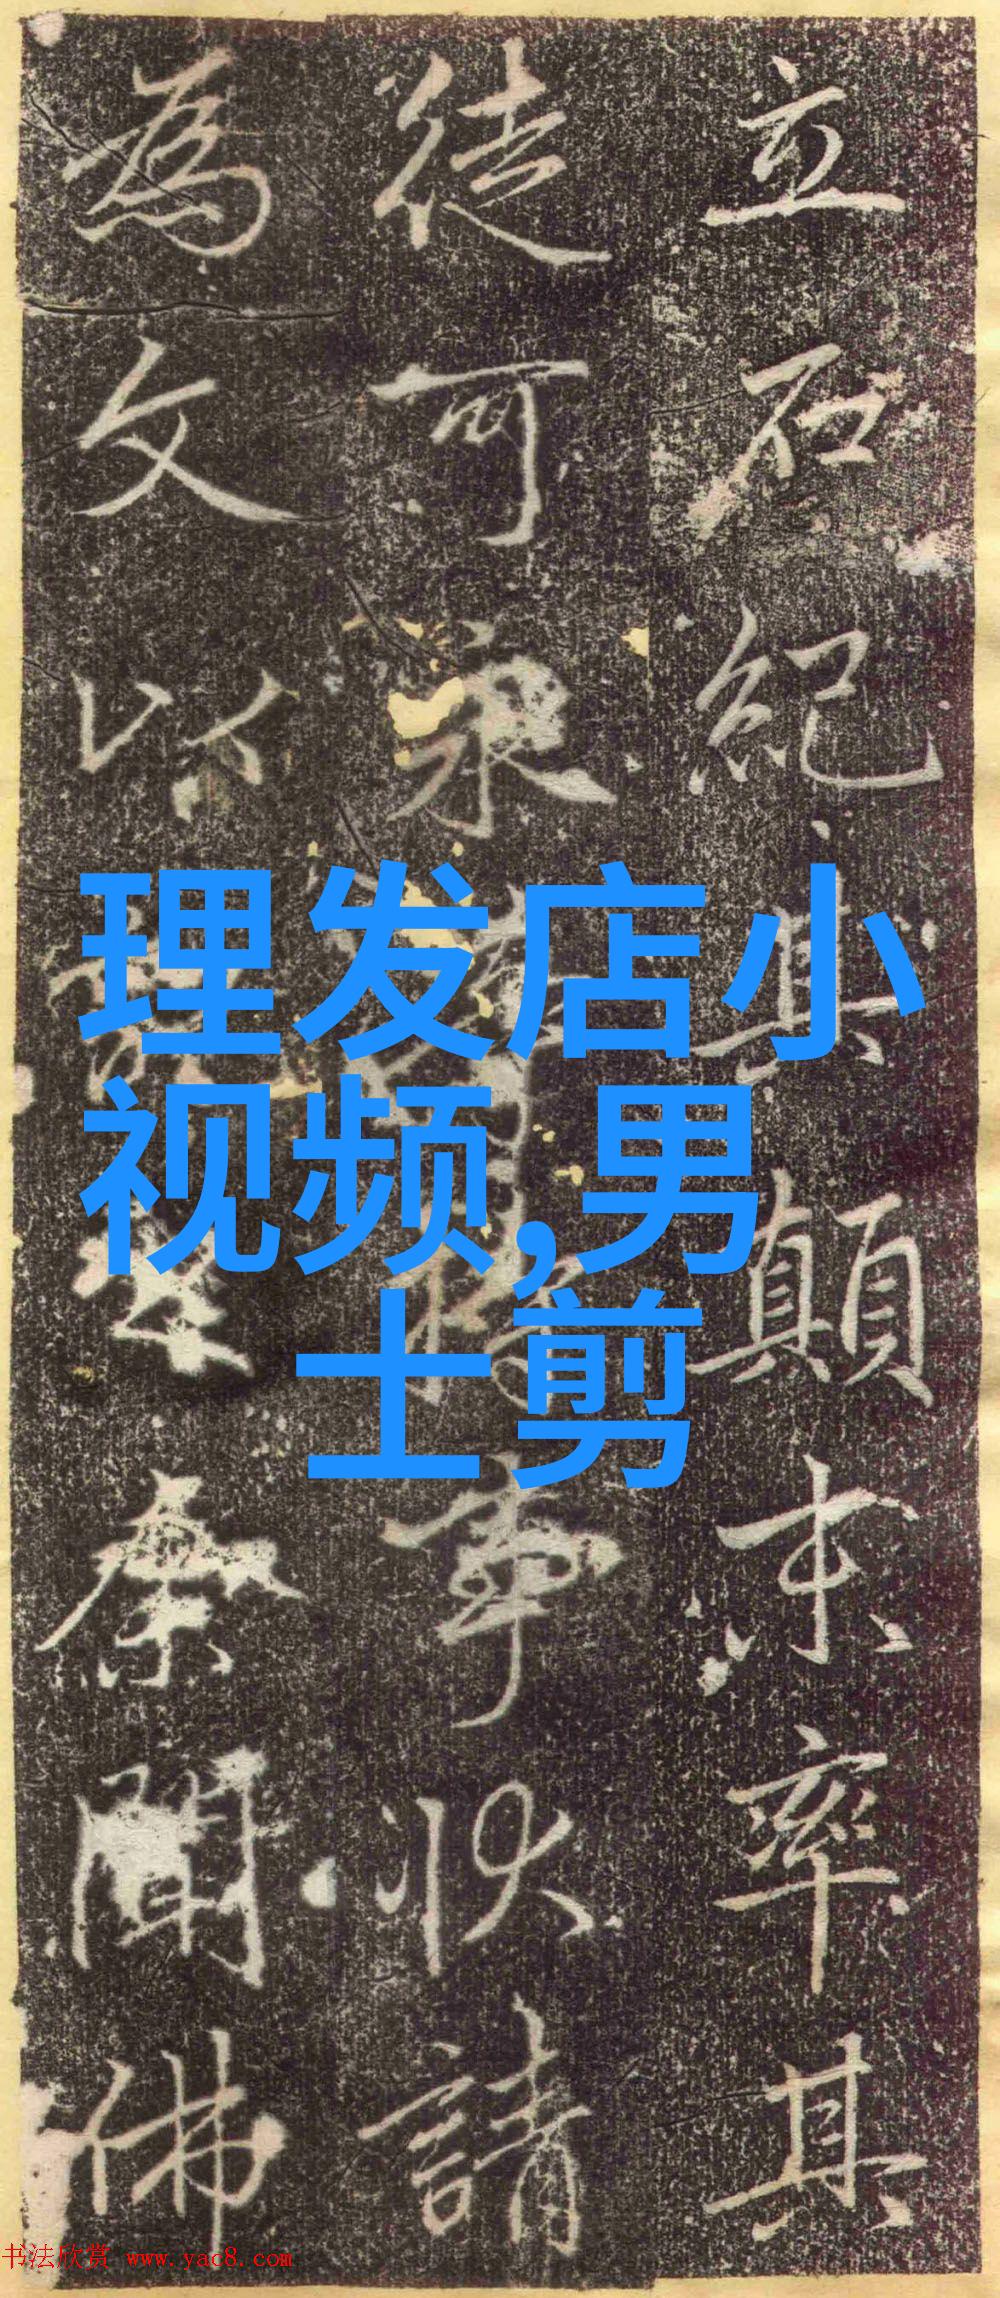 立石紀其顛末率其
徒可事狀請
為文以聞佛
理发店小
视频,男
士剪
书法欣赏 www.yac8.com